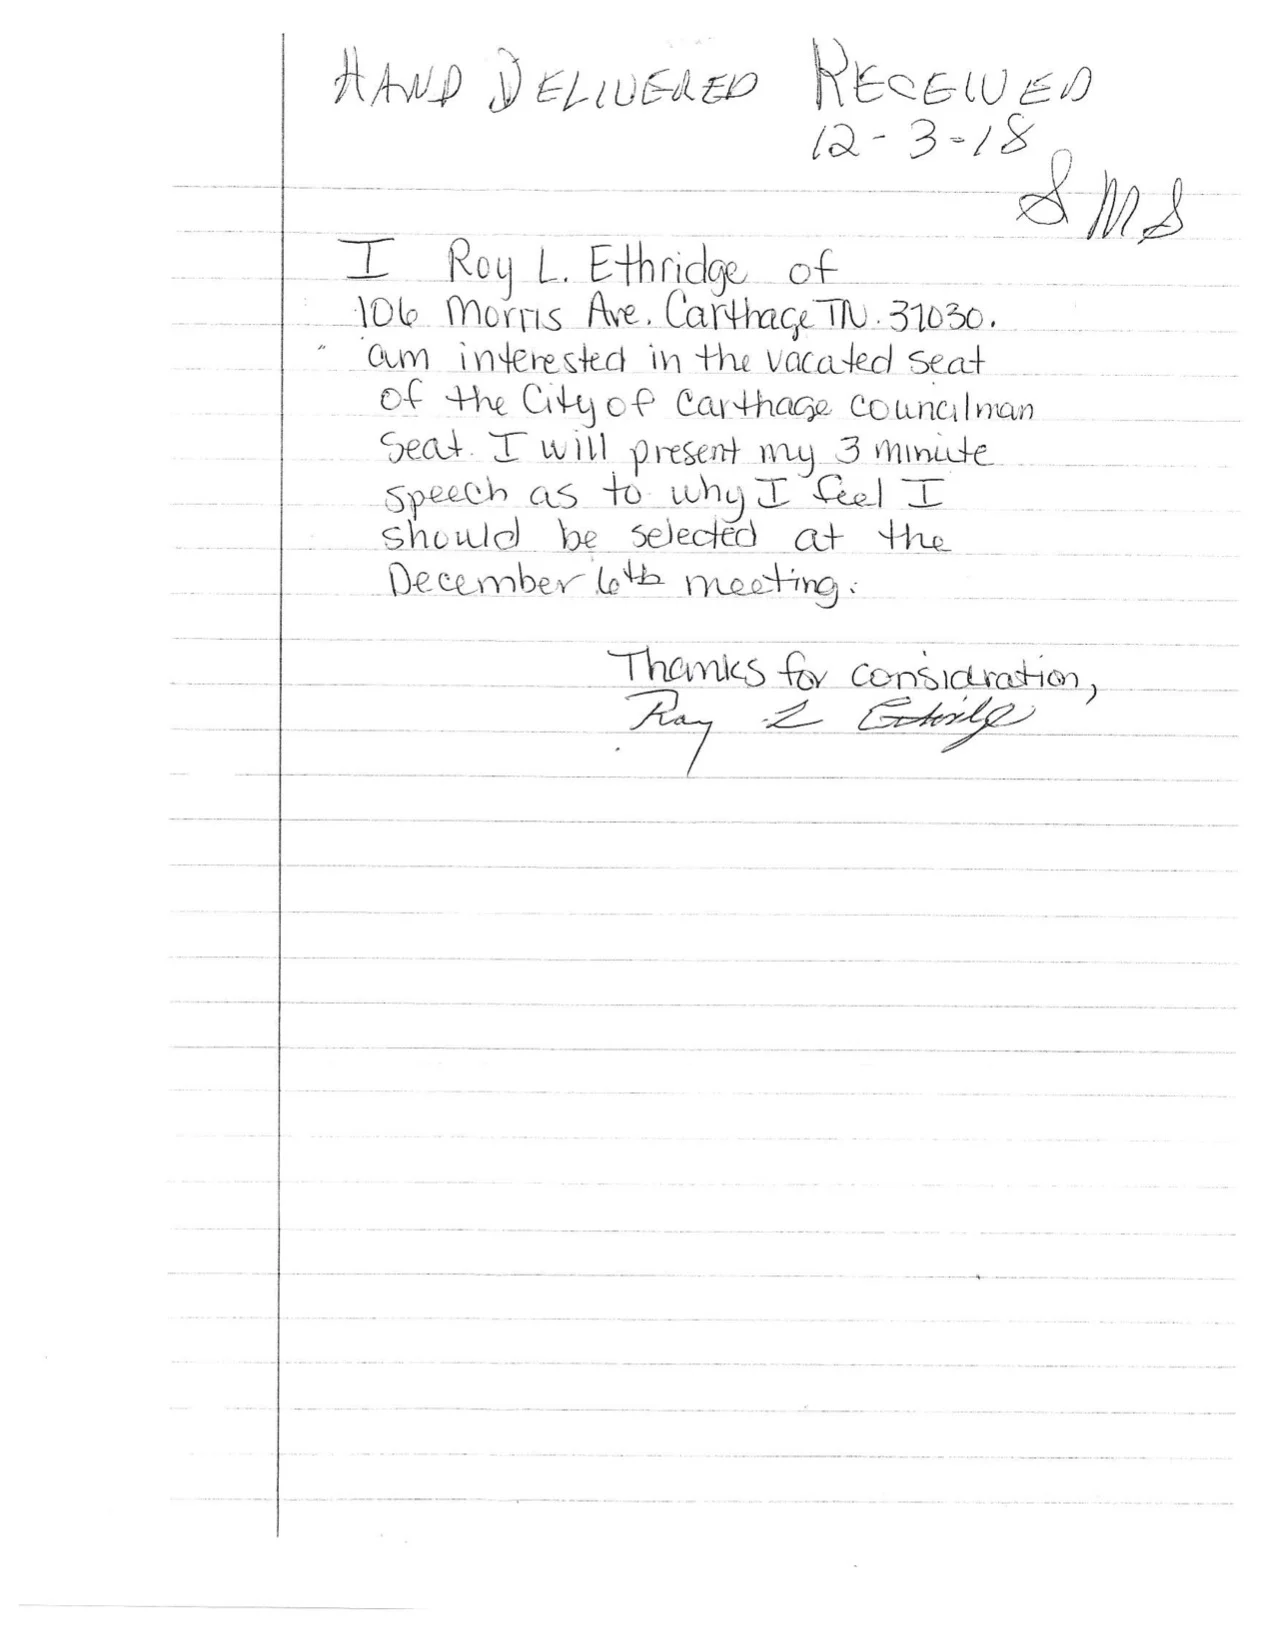 HAND DELIVERED RECEIVED
12-3-18
SMS
I Roy L. Ethridge of
106 Morris Ave. Carthage TN. 37030.
am interested in the vacated seat
of the City of Carthage councilman
seat. I will present my 3 minute
speech as to why I feel I
should be selected at the
December 6th meeting.
Thanks for considration,
Roy L Ethridge